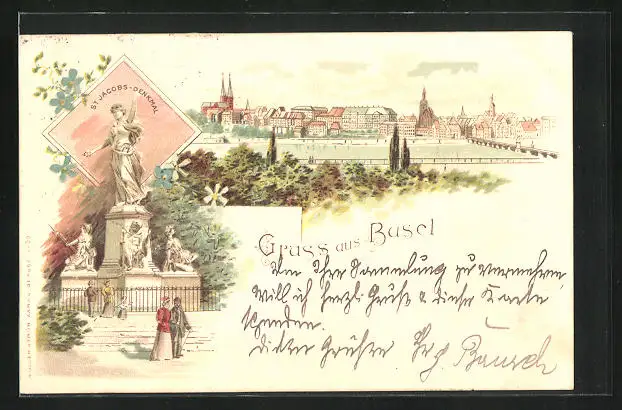 ST JACOBS-DENKMAL
Gruss aus Basel
Um Ihre Sammlung zu vermehren,
will ich herzl. Gruß & diese Karte
spenden.
Grüße
Bausch